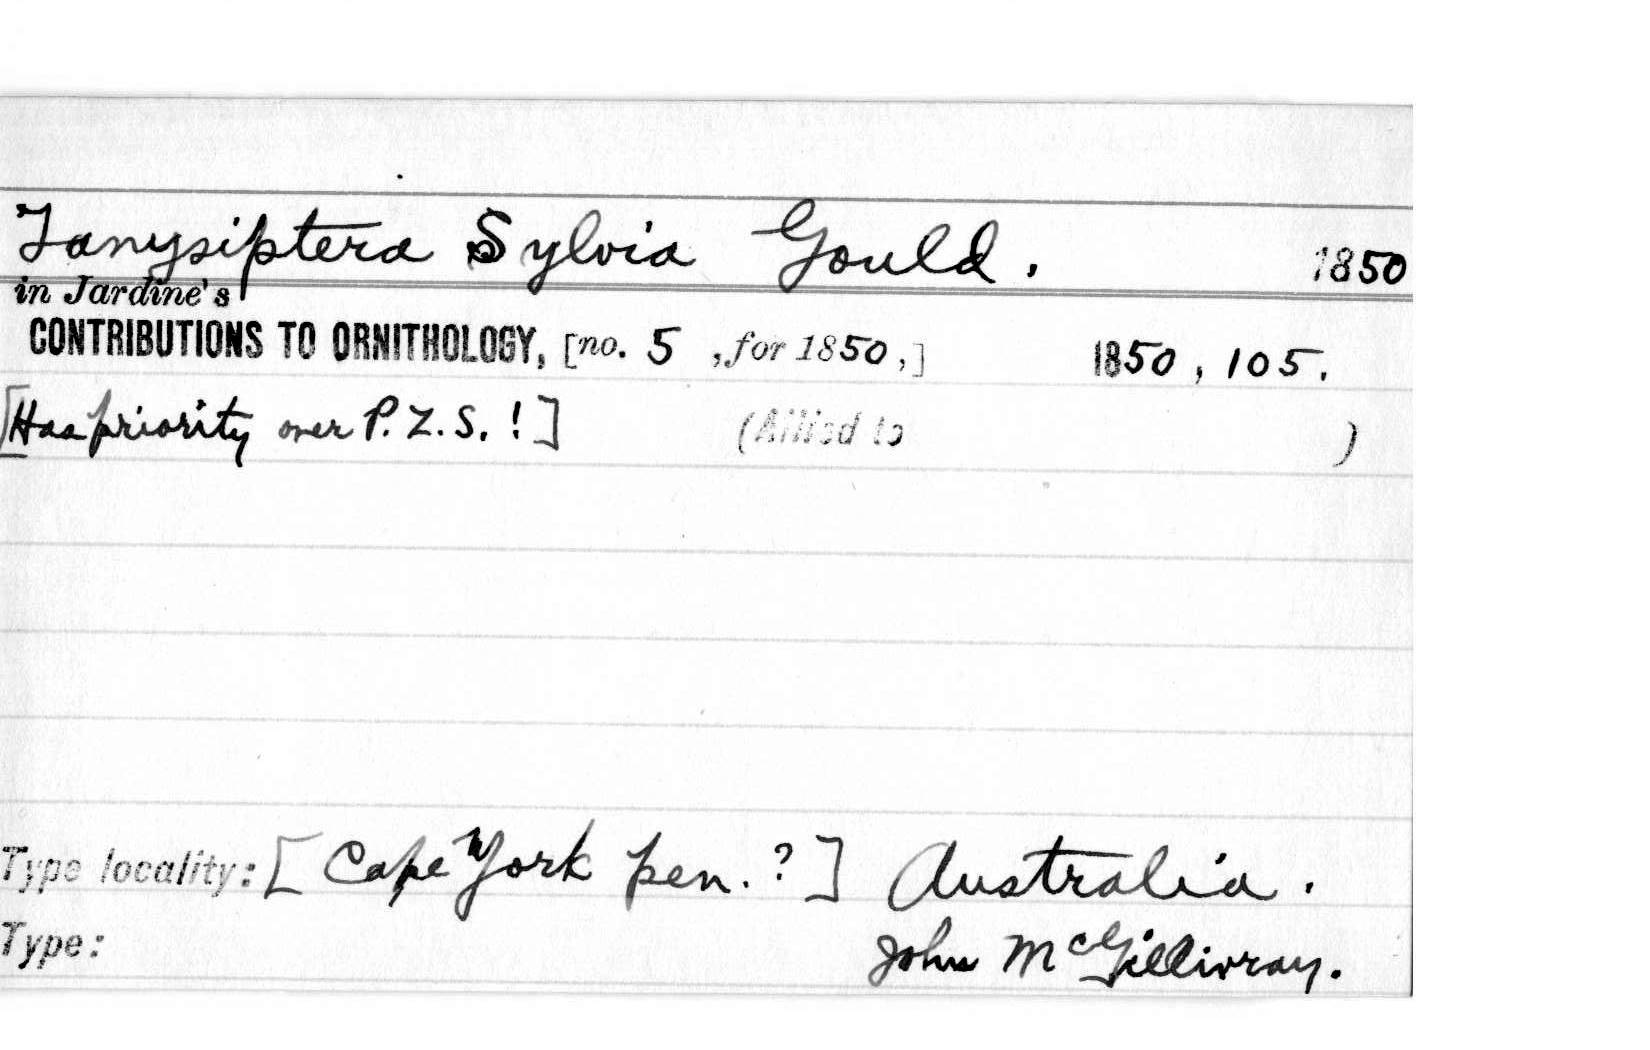 Tanysiptera Sylvia Gould. 1850
in Jardine's
CONTRIBUTIONS TO ORNITHOLOGY, [no. 5 ,for 1850,] 1850, 105.
[Has priority over P.Z.S.!] (Allied to )
Type locality: [Cape York pen.?] Australia.
Type: John McGillivray.